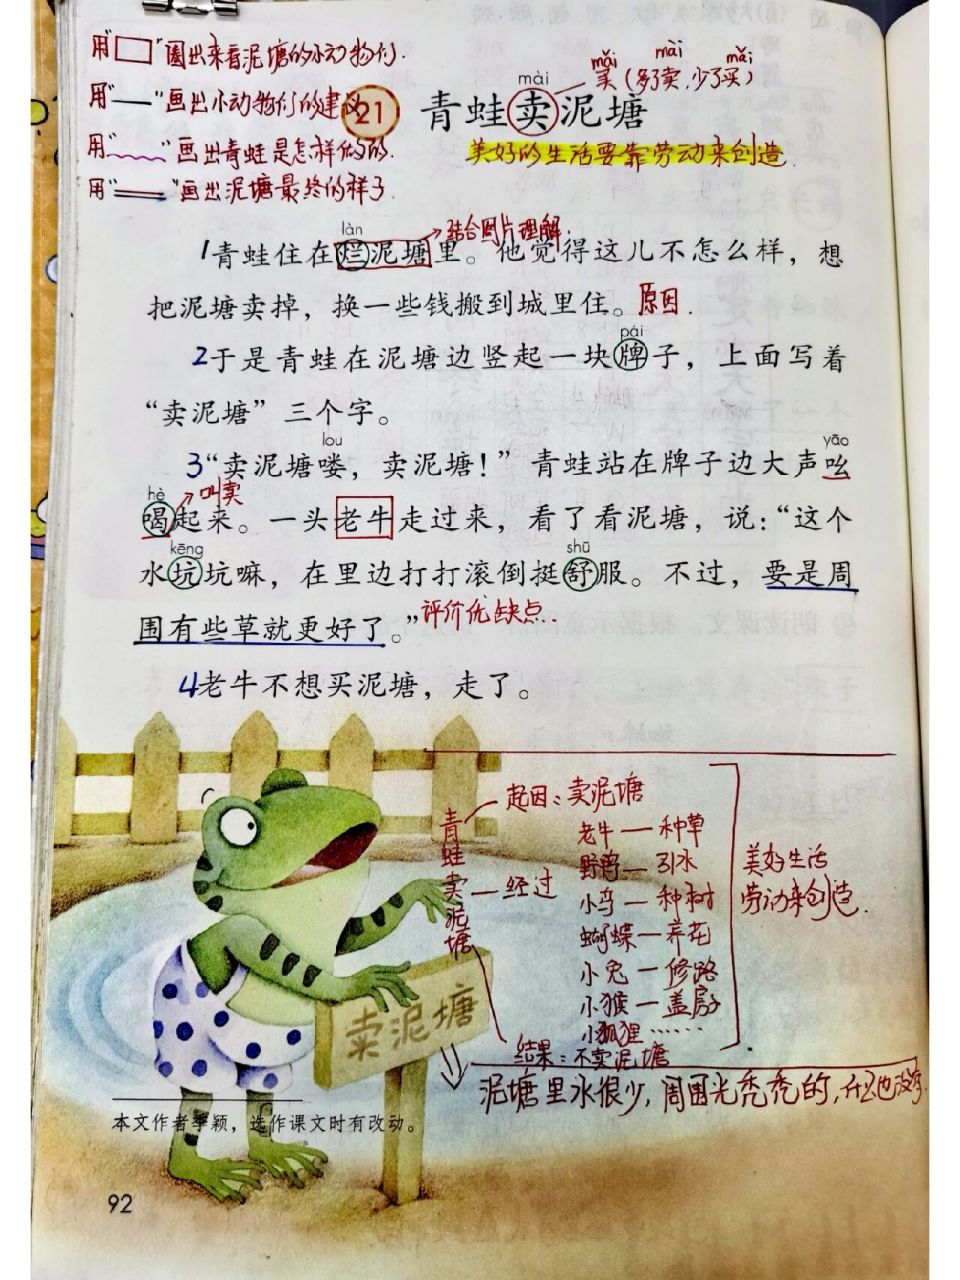 用"□"圈出来看泥塘的小动物们.
用"——"画出小动物们的建议
用"﹏﹏"画出青蛙是怎样做的.
用"═══"画出泥塘最终的样子.
mǎi mài mǎi
买(多了卖,少了买)
mài
21 青蛙卖泥塘
美好的生活要靠劳动来创造.
làn
结合图片理解.
1青蛙住在烂泥塘里。他觉得这儿不怎么样,想
把泥塘卖掉,换一些钱搬到城里住。原因.
pái
2于是青蛙在泥塘边竖起一块牌子,上面写着
“卖泥塘”三个字。
lou yāo
3“卖泥塘喽,卖泥塘!”青蛙站在牌子边大声吆
hè 叫卖
喝起来。一头老牛走过来,看了看泥塘,说:“这个
kēng shū
水坑坑嘛,在里边打打滚倒挺舒服。不过,要是周
围有些草就更好了。”评价优缺点...
4老牛不想买泥塘,走了。
青蛙卖泥塘
起因:卖泥塘
经过
老牛—种草
野鸭—引水
小鸟—种树
蝴蝶—养花
小兔—修路
小猴—盖房子
小狐狸……
结果:不卖泥塘
美好生活
劳动来创造.
卖泥塘
泥塘里水很少,周围光秃秃的,什么也没有.
本文作者李颖,选作课文时有改动。
92